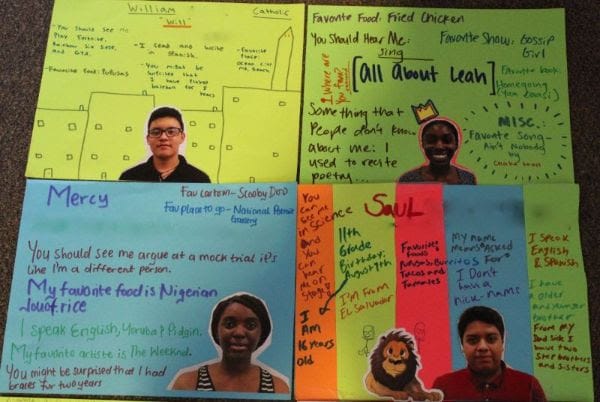 William
"Will"
Catholic
- You should see me
Play Fortnite,
Rainbow Six Siege,
and GTA.
- I read and write
in Spanish.
- Favorite
Place:
Ocean City
MD, Beach
- Favorite food: Pupusas
- You might be
surprised that
I have played
for
years
Favorite Food: Fried Chicken
You Should Hear Me:
sing
Favorite Show: Gossip
Girl
Where are
you from?
[All About Leah]
Favorite book:
Homegoing
(Yaa Gyasi)
Something that
People don't know
about me: I
used to recite
poetry...
MISC.:
Favorite Song-
Ain't Nobody
by
Chaka Khan
Mercy
Fav cartoon- Scooby Doo
Fav place to go- National Portrait
Gallery
You should see me argue at a mock trial it's
like I'm a different person.
My favorite food is Nigerian
Jollof rice
I speak English, Yoruba & Pidgin.
My favorite artiste is The Weeknd.
You might be surprised that I had
braces for two years
Saul
You
can
see me
in Science
And
You
can
hear
me on
stage
I
Am
16 years
old
11th
Grade
Birthday:
August 9th
I'm From
El Salvador
Favorite
foods
Pupusas, Burritos
Tacos and
Tamales
My name
Means Asked
For
I Don't
have a
nick-name
I speak
English
& Spanish
I have
a older
and younger
brother
From my
Dad side I
have two
step brothers
and sisters